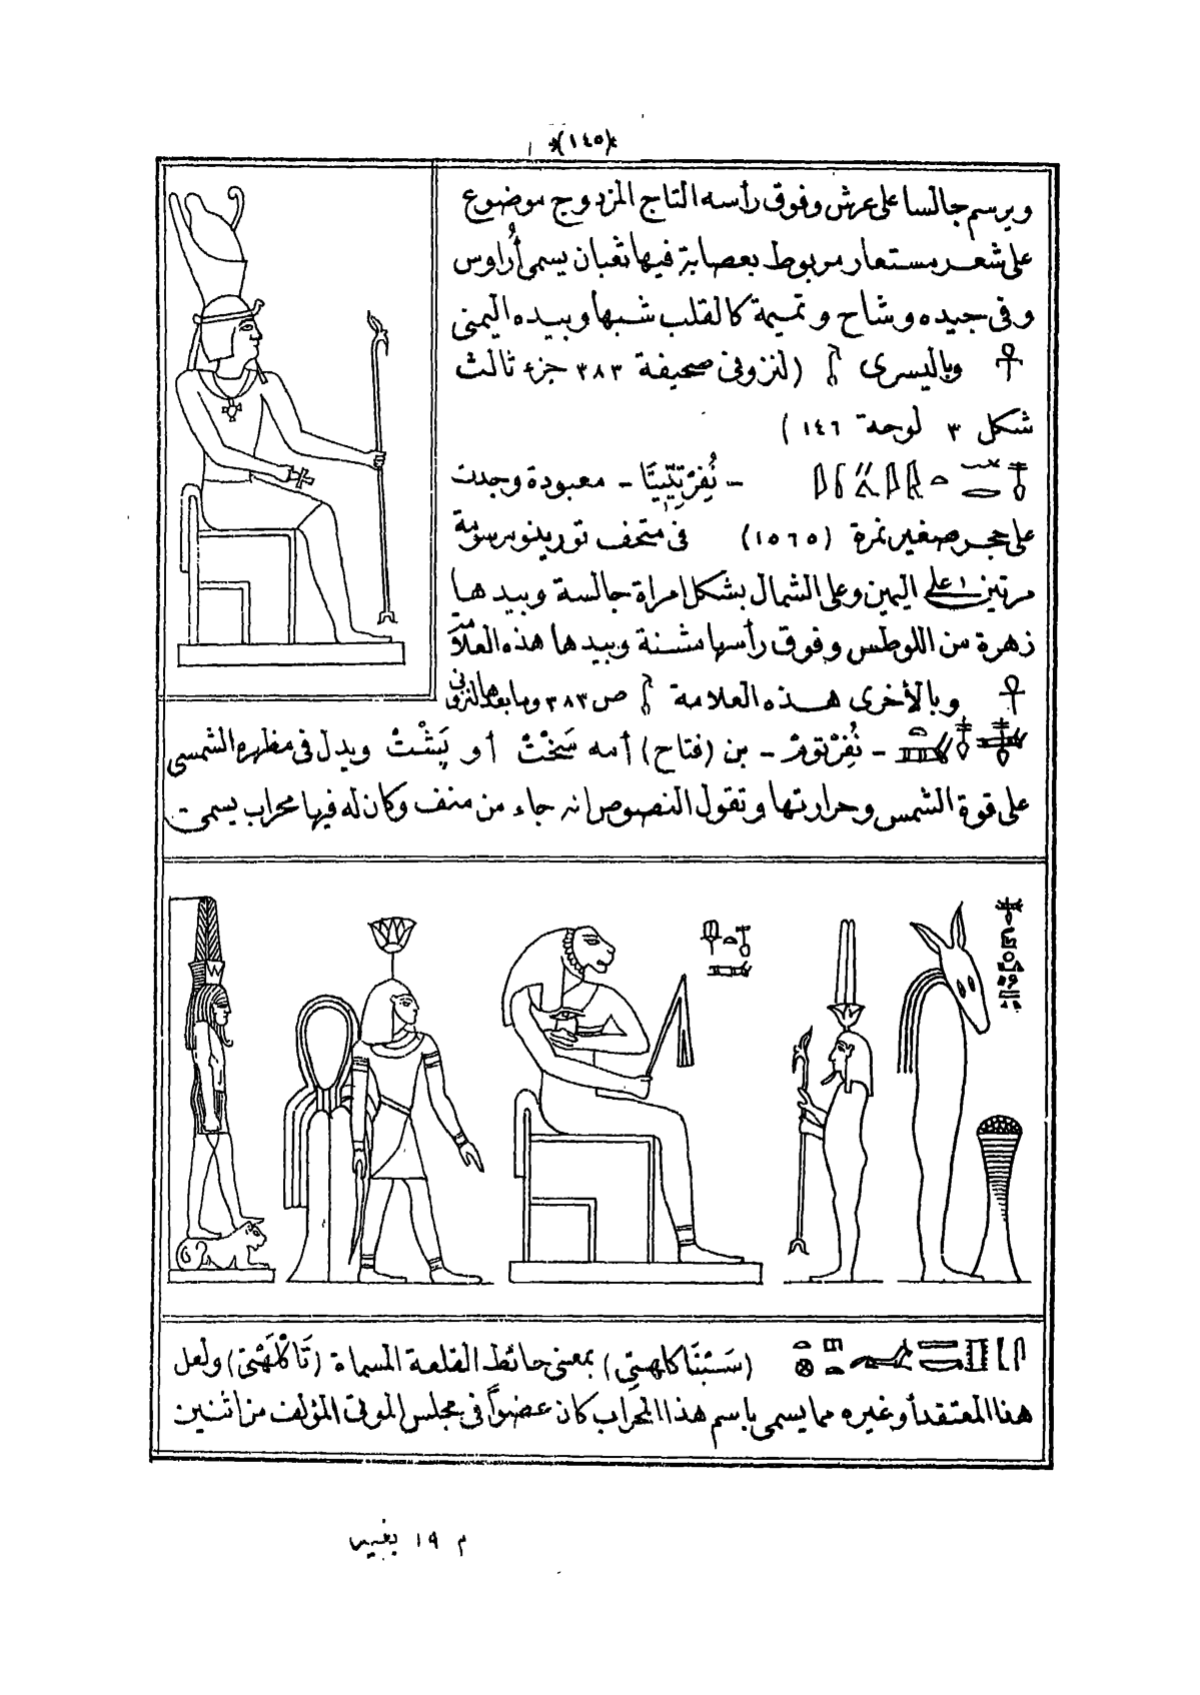 (١٤٥)
ويرسم جالسا على عرش وفوق رأسه التاج المزدوج موضوع
على شعر مستعار مربوط بعصابة فيها ثعبان يسمى أُراوس
وفى جيده وشاح وتميمة كالقلب شبها وبيده اليمنى
☥ وباليسرى (لنزونى صحيفة ٣٨٣ جزء ثالث
شكل ٣ لوحة ١٤٦)
- معبودة وجدت
على حجر صغير نمرة (١٥٦٥) فى متحف تورينو مرسومة
مرتين على اليمين وعلى الشمال بشكل امراة جالسة وبيدها
زهرة من اللوطس وفوق رأسها مشنة وبيدها هذه العلامة
☥ وبالأخرى هذه العلامة ص ٣٨٣ وما بعدها لنزونى
- نُفِرْتومْ - بن (فتاح) أمه سَخْتْ أو پَشْتْ ويدل فى مظهره الشمسى
على قوة الشمس وحرارتها وتقول النصوص انه جاء من منف وكان له فيها محراب يسمى
بمعنى حائط القلعة المسماة ولعل
هذا المعتقد أو غيره مما يسمى باسم هذا المحراب كان عضواً فى مجلس الموتى المؤلف من اثنين
م ١٩